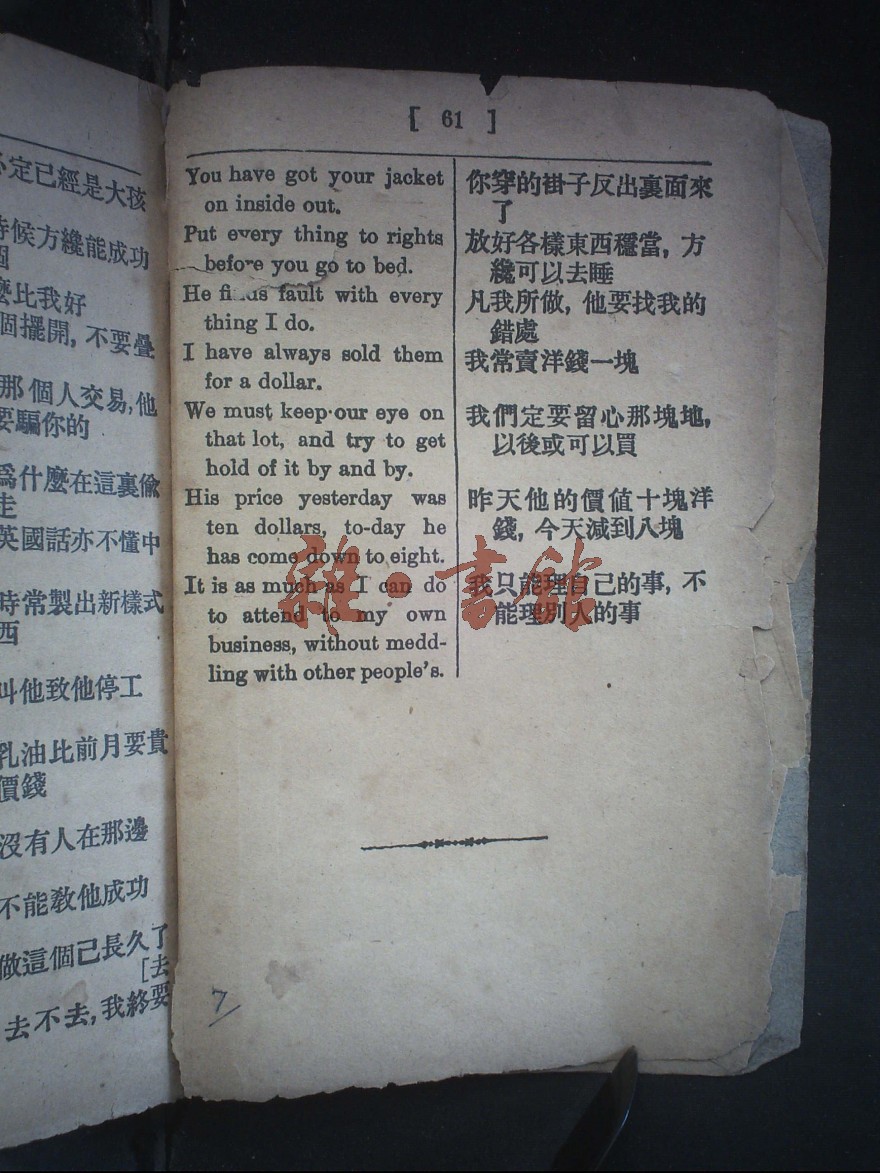 [ 61 ]
You have got your jacket
on inside out.
Put every thing to rights
before you go to bed.
He finds fault with every
thing I do.
I have always sold them
for a dollar.
We must keep our eye on
that lot, and try to get
hold of it by and by.
His price yesterday was
ten dollars, to-day he
has come down to eight.
It is as much as I can do
to attend to my own
business, without medd-
ling with other people's.
你穿的褂子反出裏面來
了
放好各樣東西穩當, 方
纔可以去睡
凡我所做, 他要找我的
錯處
我常賣洋錢一塊
我們定要留心那塊地,
以後或可以買
昨天他的價值十塊洋
錢, 今天減到八塊
我只能理自己的事, 不
能理別人的事
定已經是大孩
時候方纔能成功
個
麼比我好
個擺開, 不要疊
那個人交易, 他
要騙你的
爲什麼在這裏偷
走
英國話亦不懂中
時常製出新樣式
西
叫他致他停工
乳油比前月要貴
價錢
沒有人在那邊
不能敎他成功
做這個已長久了
[去
去不去, 我終要
7
雜·書館